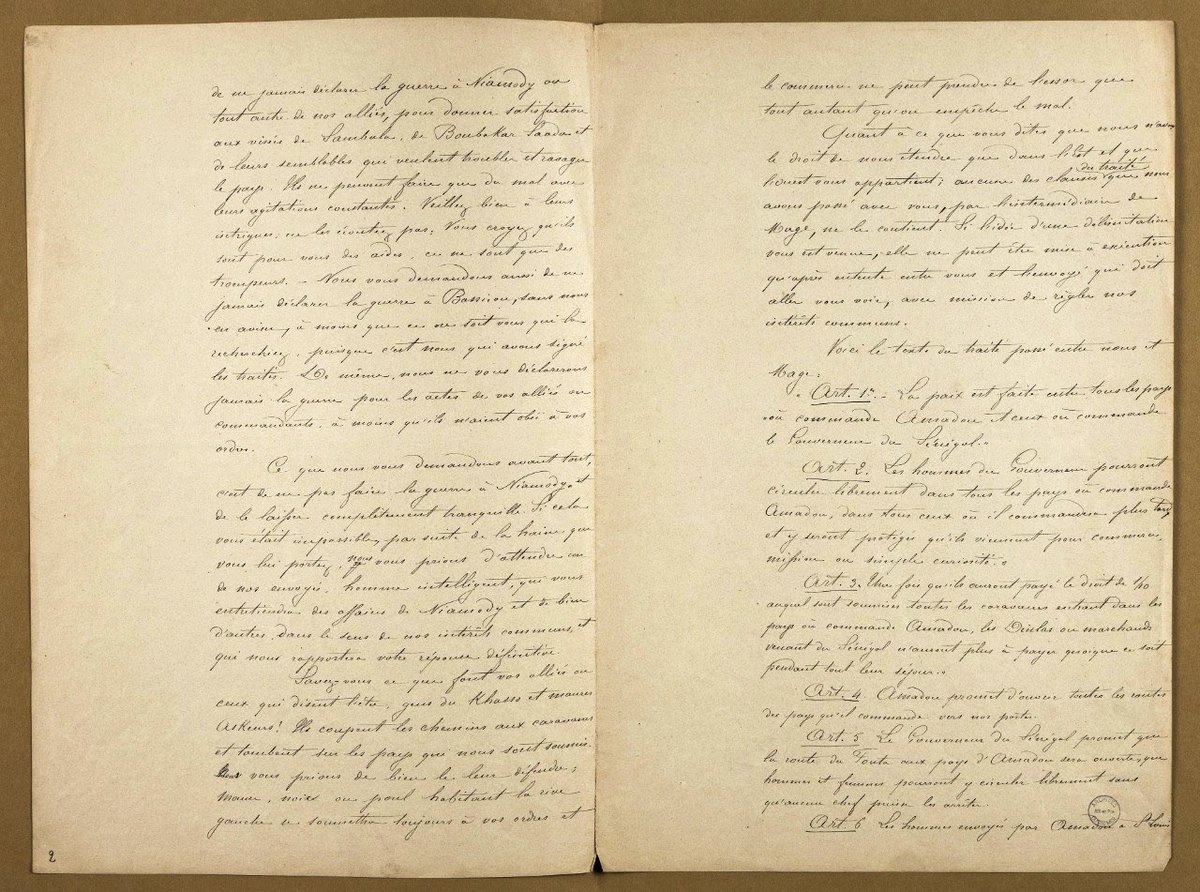 de ne jamais déclarer la guerre à Niamody ou
tout autre de nos alliés, pour donner satisfaction
aux visées de Sambala, de Boubakar Saada et
de leurs semblables qui veulent troubler et ravager
le pays. Ils ne peuvent faire que du mal avec
leurs agitations constantes. Veillez bien à leurs
intrigues, ne les écoutez pas; Vous croyez qu'ils
sont pour vous des aides, ce ne sont que des
trompeurs. - Nous vous demandons aussi de ne
jamais déclarer la guerre à Bassirou, sans nous
en aviser, à moins que ce ne soit vous qui la
recherchiez, puisque c'est nous qui avons signé
les traités. De même, nous ne vous déclarerons
jamais la guerre pour les actes de vos alliés ou
commandants, à moins qu'ils n'aient obéi à vos
ordres.
Ce que nous vous demandons avant tout,
c'est de ne pas faire la guerre à Niamody et
de le laisser complètement tranquille. Si cela
vous était impossible, par suite de la haine que
vous lui portez, nous vous prions d'attendre un
de nos envoyés, homme intelligent, qui vous
entretiendra des affaires de Niamody et de bien
d'autres, dans le sens de nos intérêts communs, et
qui nous rapportera votre réponse définitive.
Savez-vous ce que font vos alliés ou
ceux qui disent l'être, gens du Khasso et maures
Askeurs! Ils coupent les chemins aux caravanes
et tombent sur les pays qui nous sont soumis.
Nous vous prions de bien le leur défendre;
maure, noir ou peul habitant la rive
gauche se soumettra toujours à vos ordres et
2
le commerce ne peut prendre de l'essor que
tout autant qu'on empêche le mal.
Quant à ce que vous dites que nous n'avons
le droit de nous étendre que dans l'Est et que
l'ouest vous appartient; aucune des clauses du traité que nous
avons passé avec vous, par l'intermédiaire de
Mage, ne le contient. Si l'idée d'une délimitation
vous est venue, elle ne peut être mise à exécution
qu'après entente entre vous et l'envoyé qui doit
aller vous voir, avec mission de régler nos
intérêts communs.
Voici le texte du traité passé entre nous et
Mage:
"Art. 1er. - La paix est faite entre tous les pays
où commande Amadou et ceux où commande
le Gouverneur du Sénégal."
Art. 2. Les hommes du Gouverneur pourront
circuler librement dans tous les pays où commande
Amadou, dans tous ceux où il commandera plus tard
et y seront protégés qu'ils viennent pour commerce,
mission ou simple curiosité."
Art. 3. Une fois qu'ils auront payé le droit de 1/10
auquel sont soumises toutes les caravanes entrant dans les
pays où commande Amadou, les Dioulas ou marchands
venant du Sénégal n'auront plus à payer quoique ce soit
pendant tout leur séjour."
Art. 4 Amadou promet d'ouvrir toutes les routes
des pays qu'il commande vers nos postes.
Art. 5 Le Gouverneur du Sénégal promet que
la route du Fouta aux pays d'Amadou sera ouverte, que
hommes et femmes pourront y circuler librement sans
qu'aucun chef puisse les arrêter.
Art. 6 Les hommes envoyés par Amadou à St Louis